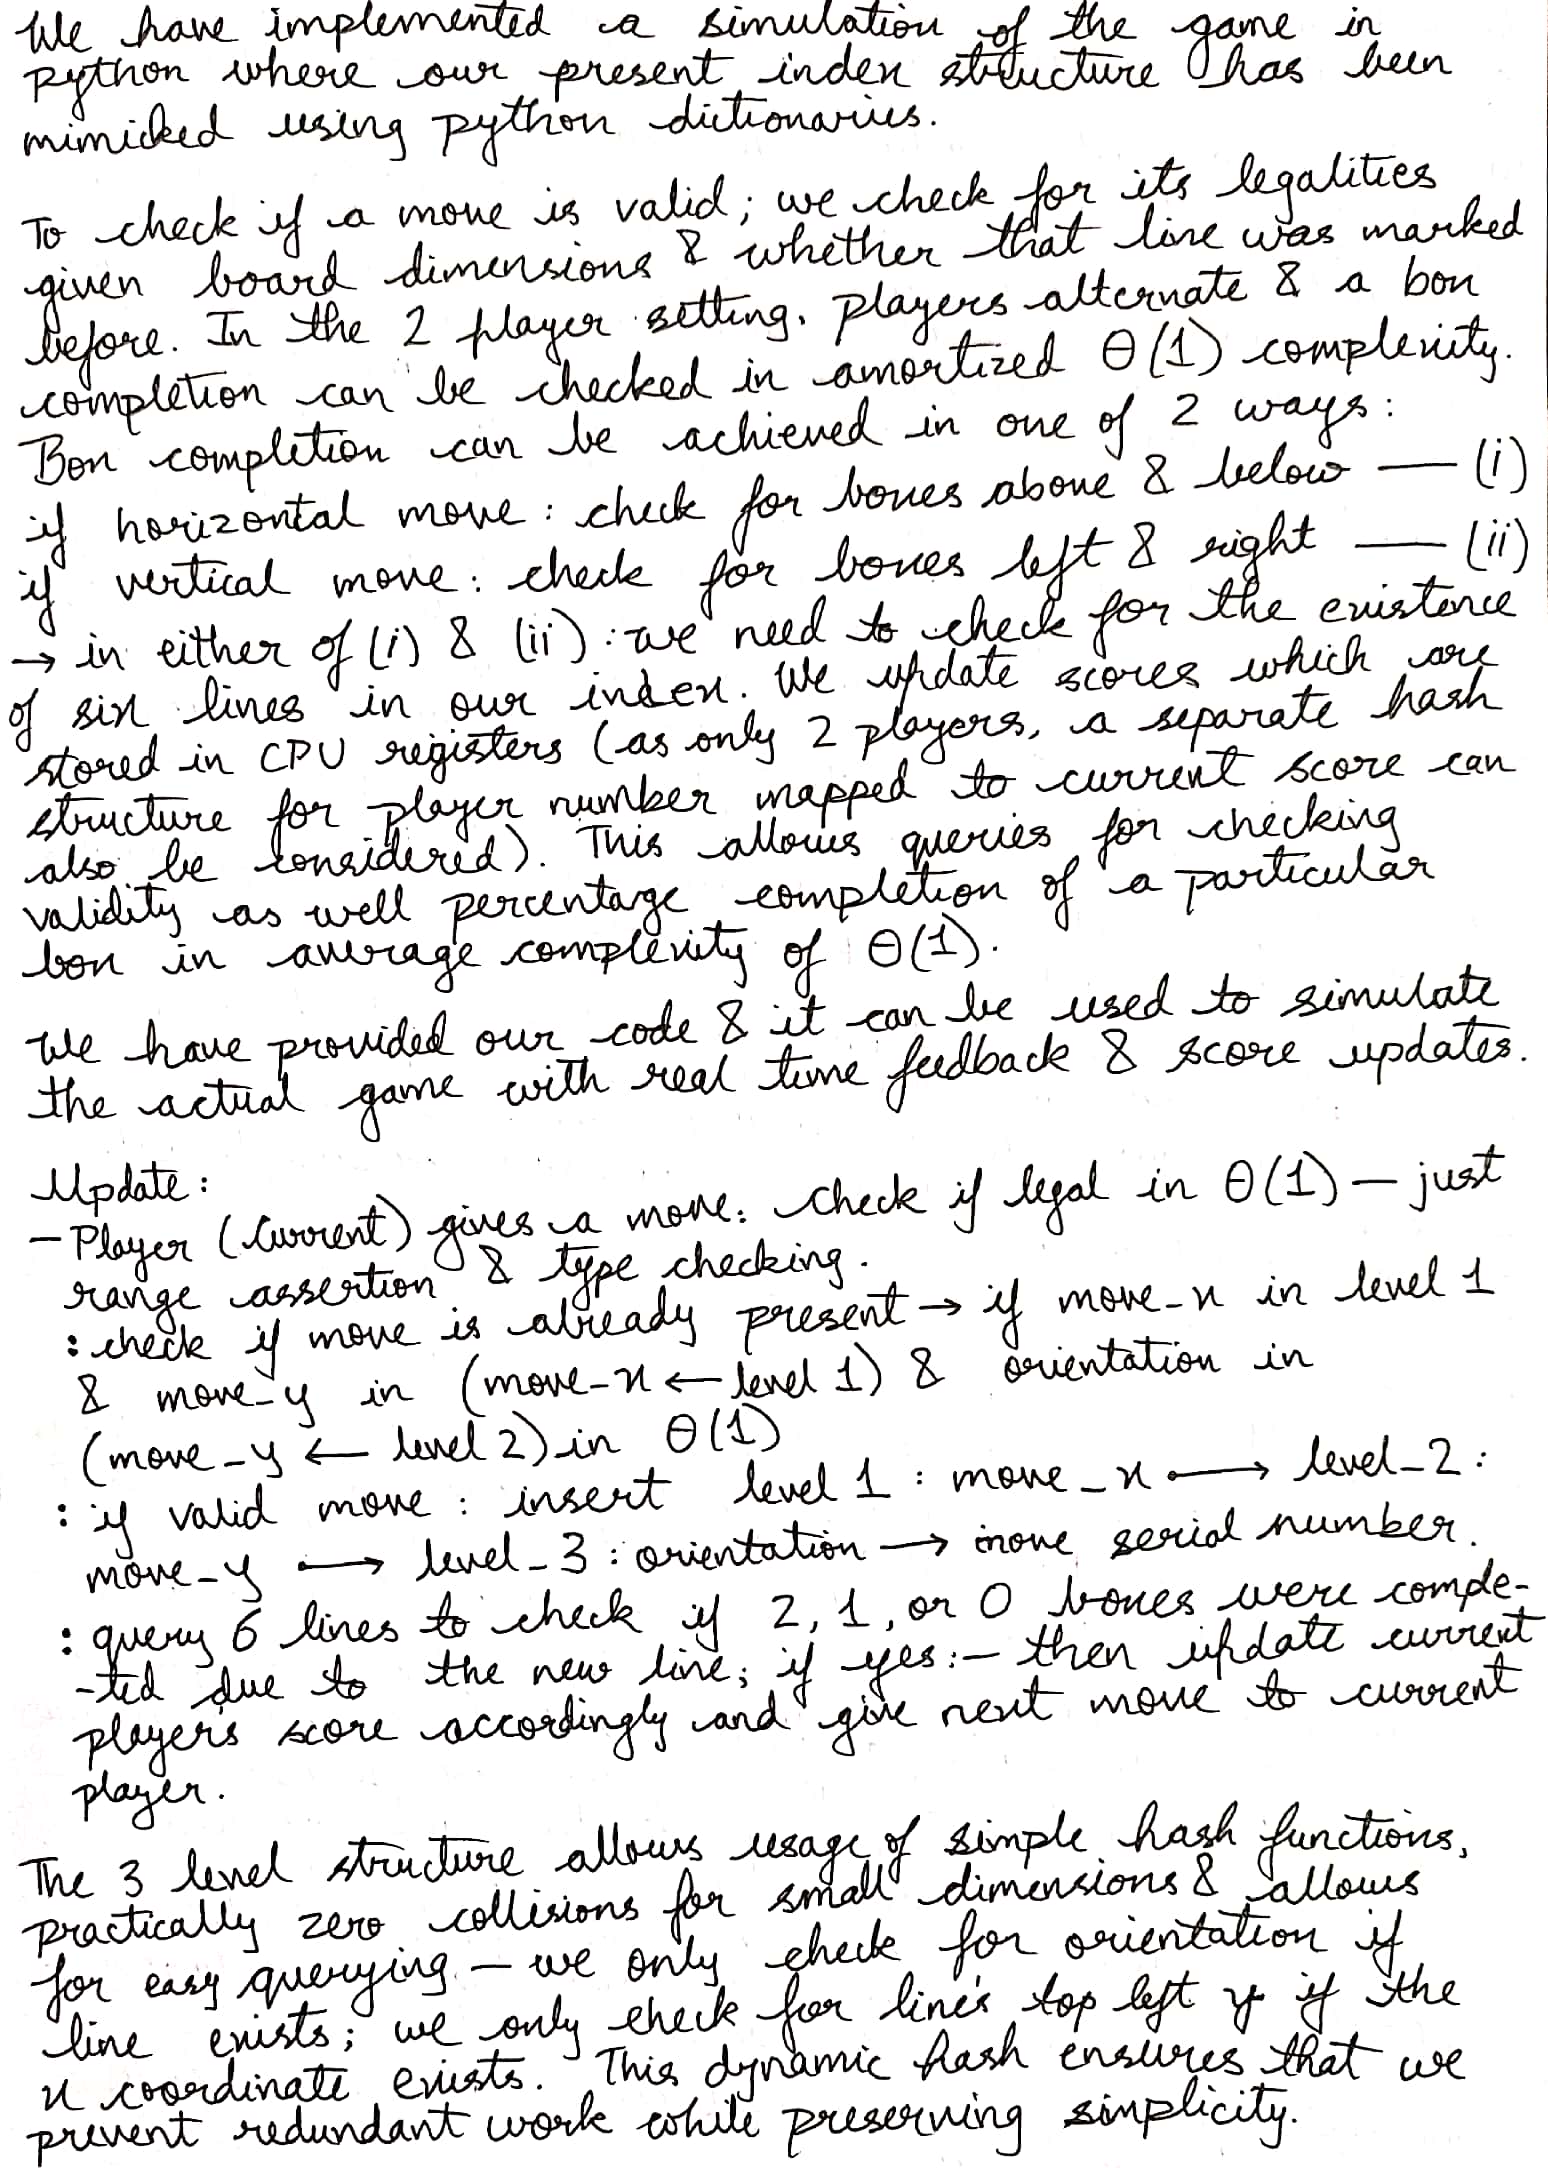 We have implemented a simulation of the game in
python where our present index structure has been
mimicked using python dictionaries.
To check if a move is valid; we check for its legalities
given board dimensions & whether that line was marked
before. In the 2 player setting, players alternate & a box
completion can be checked in amortized Θ(1) complexity.
Box completion can be achieved in one of 2 ways:
if horizontal move: check for boxes above & below — (i)
if vertical move: check for boxes left & right — (ii)
→ in either of (i) & (ii): we need to check for the existence
of six lines in our index. We update scores which are
stored in CPU registers (as only 2 players, a separate hash
structure for player number mapped to current score can
also be considered). This allows queries for checking
validity as well percentage completion of a particular
box in average complexity of Θ(1).
We have provided our code & it can be used to simulate
the actual game with real time feedback & score updates.
Update:
– Player (current) gives a move: check if legal in Θ(1) – just
range assertion & type checking.
: check if move is already present → if move-x in level 1
& move-y in (move-x ← level 1) & orientation in
(move-y ← level 2) in Θ(1)
: if valid move: insert level 1 : move_x ⟼ level-2:
move-y ⟼ level-3: orientation → move serial number.
: query 6 lines to check if 2, 1, or 0 boxes were comple-
-ted due to the new line; if yes:– then update current
player's score accordingly and give next move to current
player.
The 3 level structure allows usage of simple hash functions,
practically zero collisions for small dimensions & allows
for easy querying – we only check for orientation if
line exists; we only check for line's top left y if the
x coordinate exists. This dynamic hash ensures that we
prevent redundant work while preserving simplicity.